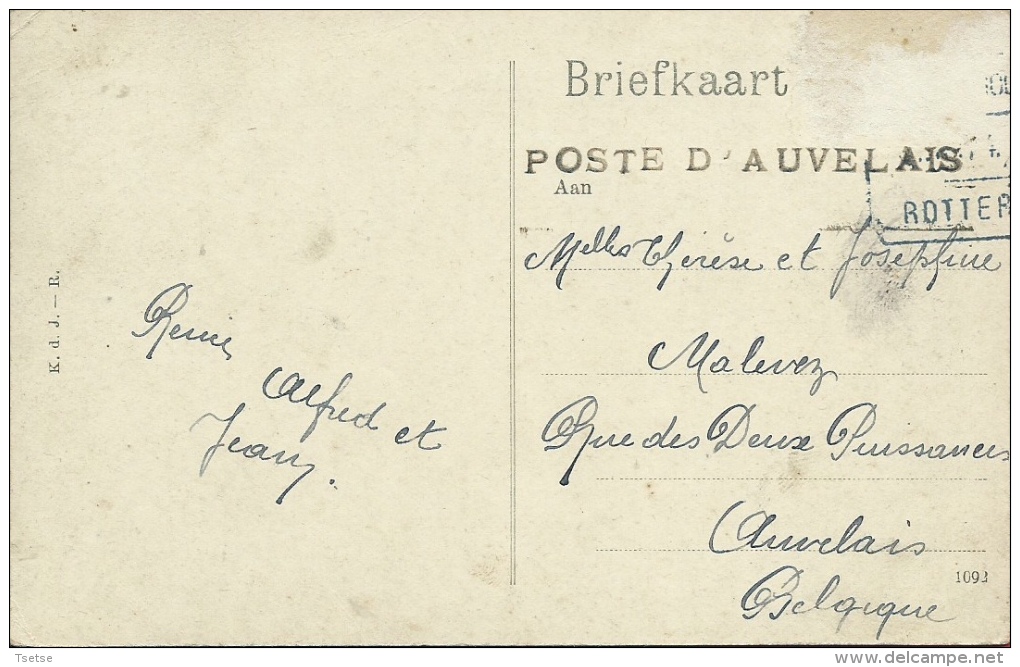 Briefkaart
POSTE D'AUVELAIS
Aan
ROTTER
Melles Thérèse et Joséphine
Malevez
Rue des Deux Puissances
Auvelais
Belgique
1092
K. d. J. — R.
Alfred et
Jean.
Tsetse
delcampe.net